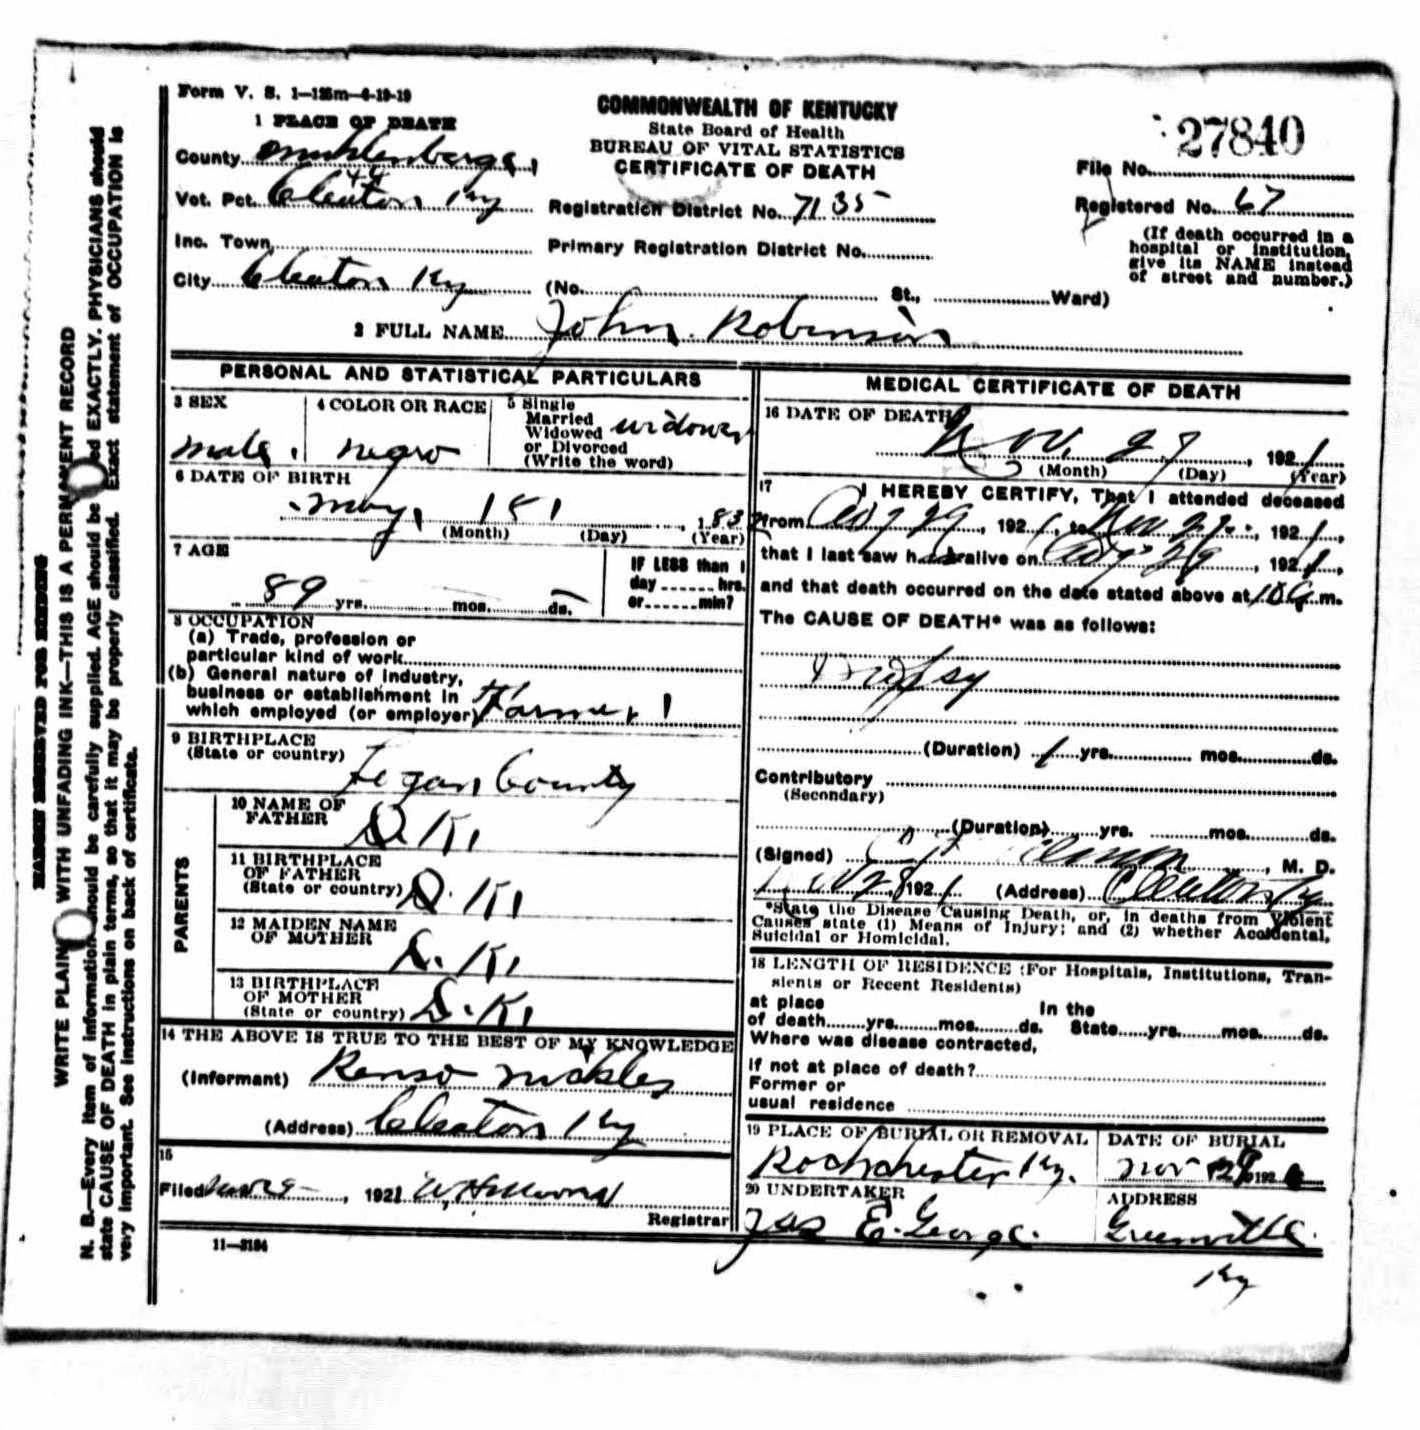 Form V. S. 1—125m—6-19-19
1 PLACE OF DEATH
County Muhlenberg
Vot. Pct. Cleaton Ky
Inc. Town
City Cleaton Ky
COMMONWEALTH OF KENTUCKY
State Board of Health
BUREAU OF VITAL STATISTICS
CERTIFICATE OF DEATH
Registration District No. 7135
Primary Registration District No.
(No. St., Ward)
27840
File No.
Registered No. 67
(If death occurred in a
hospital or institution,
give its NAME instead
of street and number.)
2 FULL NAME John Robinson
PERSONAL AND STATISTICAL PARTICULARS
3 SEX
male
4 COLOR OR RACE
negro
5 Single
Married
Widowed
or Divorced
(Write the word)
widower
6 DATE OF BIRTH
may 1st, 183
(Month) (Day) (Year)
7 AGE
89 yrs. mos. ds.
IF LESS than 1
day hrs.
or min?
8 OCCUPATION
(a) Trade, profession or
particular kind of work
(b) General nature of industry,
business or establishment in
which employed (or employer) Farmer
9 BIRTHPLACE
(State or country)
Logan County
PARENTS
10 NAME OF
FATHER
D. K.
11 BIRTHPLACE
OF FATHER
(State or country) D. K.
12 MAIDEN NAME
OF MOTHER
D. K.
13 BIRTHPLACE
OF MOTHER
(State or country) D. K.
14 THE ABOVE IS TRUE TO THE BEST OF MY KNOWLEDGE
(Informant) Renso Nickles
(Address) Cleaton Ky
15
Filed , 1921
Registrar
11—3184
MEDICAL CERTIFICATE OF DEATH
16 DATE OF DEATH
Nov. 27, 1921
(Month) (Day) (Year)
17 I HEREBY CERTIFY, That I attended deceased
from Aug 29, 1921, to Nov 27, 1921,
that I last saw h alive on Aug 29, 1921,
and that death occurred on the date stated above at m.
The CAUSE OF DEATH* was as follows:
Dropsy
(Duration) 1 yrs. mos. ds.
Contributory
(Secondary)
(Duration) yrs. mos. ds.
(Signed) , M. D.
28 1921 (Address) Cleaton Ky
*State the Disease Causing Death, or, in deaths from Violent
Causes state (1) Means of Injury; and (2) whether Accidental,
Suicidal or Homicidal.
18 LENGTH OF RESIDENCE (For Hospitals, Institutions, Tran-
sients or Recent Residents)
at place In the
of death yrs. mos. ds. State yrs. mos. ds.
Where was disease contracted,
if not at place of death?
Former or
usual residence
19 PLACE OF BURIAL OR REMOVAL
Rochchester Ky.
DATE OF BURIAL
nov 28 192
20 UNDERTAKER
Jas E. George
ADDRESS
Greenville
Ky
MARGIN RESERVED FOR BINDING
WRITE PLAINLY WITH UNFADING INK—THIS IS A PERMANENT RECORD
N. B.—Every item of information should be carefully supplied. AGE should be stated EXACTLY. PHYSICIANS should
state CAUSE OF DEATH in plain terms, so that it may be properly classified. Exact statement of OCCUPATION is
very important. See instructions on back of certificate.